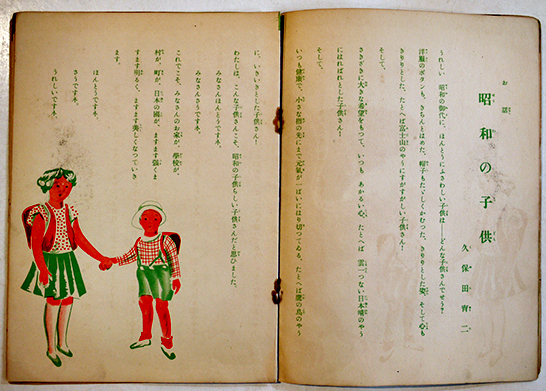 お話
昭和の子供
久保田宵二
うれしい 昭和の御代に、ほんとうにふさわしい子供は――どんな子供さんでせう?
洋服のボタンも、きちんとはめた、帽子もたゞしくかむつた、きりりとした姿、そして心も
きりりとした、たとへば富士山のやうにすがすがしい子供さん!
そして、
さきざきに大きな希望をもつて、いつも あかるい心、たとへば 雲一つない日本晴のやう
にはればれとした子供さん!
そして、
いつも健康で、小さな指の先にまで元氣が一ぱいにはり切つてゐる、たとへば鷹の鳥のやう
に、いきいきとした子供さん!
わたしは、こんな子供さんこそ、昭和の子供らしい子供さんだと思ひました。
みなさんほんとうですネ。
みなさんさうですネ。
これでこそ、みなさんのお家が、學校が、
村が、町が、日本の國が、ますます強くま
すます明るく、ますます美しくなつていき
ます。
ほんとうですネ。
さうですネ。
うれしいですネ。